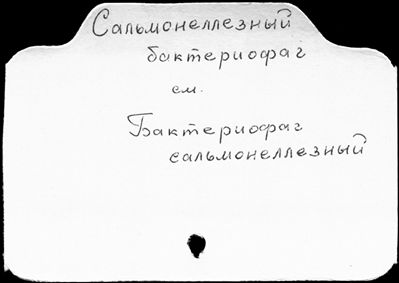 Сальмонеллезный
бактериофаг
см.
Бактериофаг
сальмонеллезный